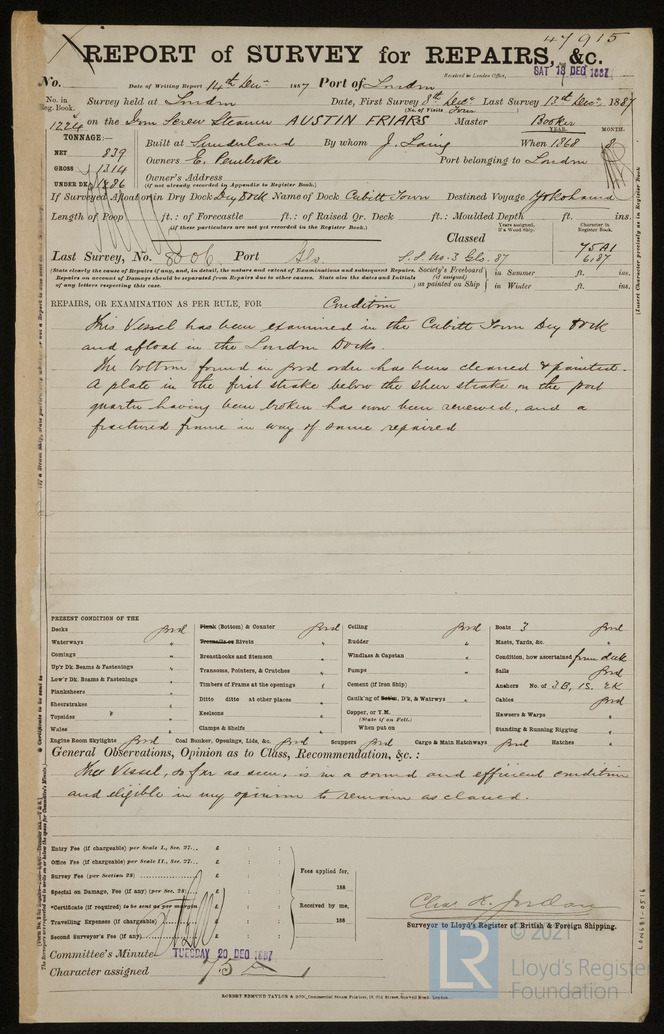 47915
REPORT of SURVEY for REPAIRS, &c.
No. Date of Writing Report 14th Decr 1887 Port of London Received in London Office, SAT 18 DEC 1887
No. in Reg. Book. Survey held at London Date, First Survey 8th Decr Last Survey 13th Decr 1887
(No. of Visits Four)
1224 on the Iron Screw Steamer AUSTIN FRIARS Master Booker
TONNAGE:— YEAR. MONTH.
Built at Sunderland By whom J. Laing When 1868 8
NET 839 Owners E. Pembroke Port belonging to London
GROSS 1314 Owner's Address
UNDER DK. 1286 (if not already recorded in Appendix to Register Book.)
If Surveyed Afloat or in Dry Dock Dry Dock Name of Dock Cubitt Town Destined Voyage Yokohama
Length of Poop ft.: of Forecastle ft.: of Raised Qr. Deck ft.: Moulded Depth ft. ins.
(if these particulars are not yet recorded in the Register Book.)
Classed Years assigned, if a Wood Ship. Character in Register Book.
75A1
Last Survey, No. 8006 Port Gls. S.S. No. 3 Gls. 87 6.87
(State clearly the cause of Repairs if any, and, in detail, the nature and extent of Examinations and subsequent Repairs.
Repairs on account of Damage should be separated from Repairs due to other causes. State also the dates and Initials
of any letters respecting this case.
Society's Freeboard (if assigned) as painted on Ship in Summer ft. ins.
in Winter ft. ins.
REPAIRS, OR EXAMINATION AS PER RULE, FOR Condition
This Vessel has been examined in the Cubitt Town Dry Dock
and afloat in the London Docks.
The bottom found in good order has been cleaned & painted.
A plate in the first strake below the sheer strake on the port
quarter having been broken has now been renewed, and a
fractured frame in way of same repaired
PRESENT CONDITION OF THE
Decks good
Waterways "
Comings "
Up'r Dk. Beams & Fastenings "
Low'r Dk. Beams & Fastenings "
Planksheers "
Sheerstrakes "
Topsides "
Wales "
Plank (Bottom) & Counter good
Treenails or Rivets "
Breasthooks and Stemson "
Transoms, Pointers, & Crutches "
Timbers of Frame at the openings "
Ditto ditto at other places "
Keelsons "
Clamps & Shelfs "
Ceiling good
Rudder "
Windlass & Capstan "
Pumps "
Cement (if Iron Ship) "
Caulk'ng of Bottm, D'k, & Watrwys "
Copper, or Y.M.
(State if on Felt.)
When put on
Boats 3 good
Masts, Yards, &c. "
Condition, how ascertained from deck
Sails good
Anchors No. of 3B, 1S, 2K
Cables good
Hawsers & Warps "
Standing & Running Rigging "
Engine Room Skylights good Coal Bunker, Openings, Lids, &c. good Scuppers good Cargo & Main Hatchways good Hatches "
General Observations, Opinion as to Class, Recommendation, &c.:
This Vessel, so far as seen, is in a sound and efficient condition
and eligible in my opinion to remain as classed.
Entry Fee (if chargeable) per Scale I., Sec. 27... £ : :
Office Fee (if chargeable) per Scale II., Sec. 27... £ : :
Survey Fee (per Section 28) £ : :
Special on Damage, Fee (if any) (per Sec. 28) £ : :
*Certificate (if required) to be sent as per margin £ : :
Travelling Expenses (if chargeable) £ : :
Second Surveyor's Fee (if any) £ : :
Fees applied for,
188
Received by me,
188
Chas. K. Jordan
Surveyor to Lloyd's Register of British & Foreign Shipping.
Committee's Minute TUESDAY 20 DEC 1887
Character assigned 75 A
ROBERT EDMUND TAYLOR & SON, Commercial Steam Printers, 19, Old Street, Goswell Road, London.
LON681-0516
LR
© 2021
Lloyd's Register
Foundation